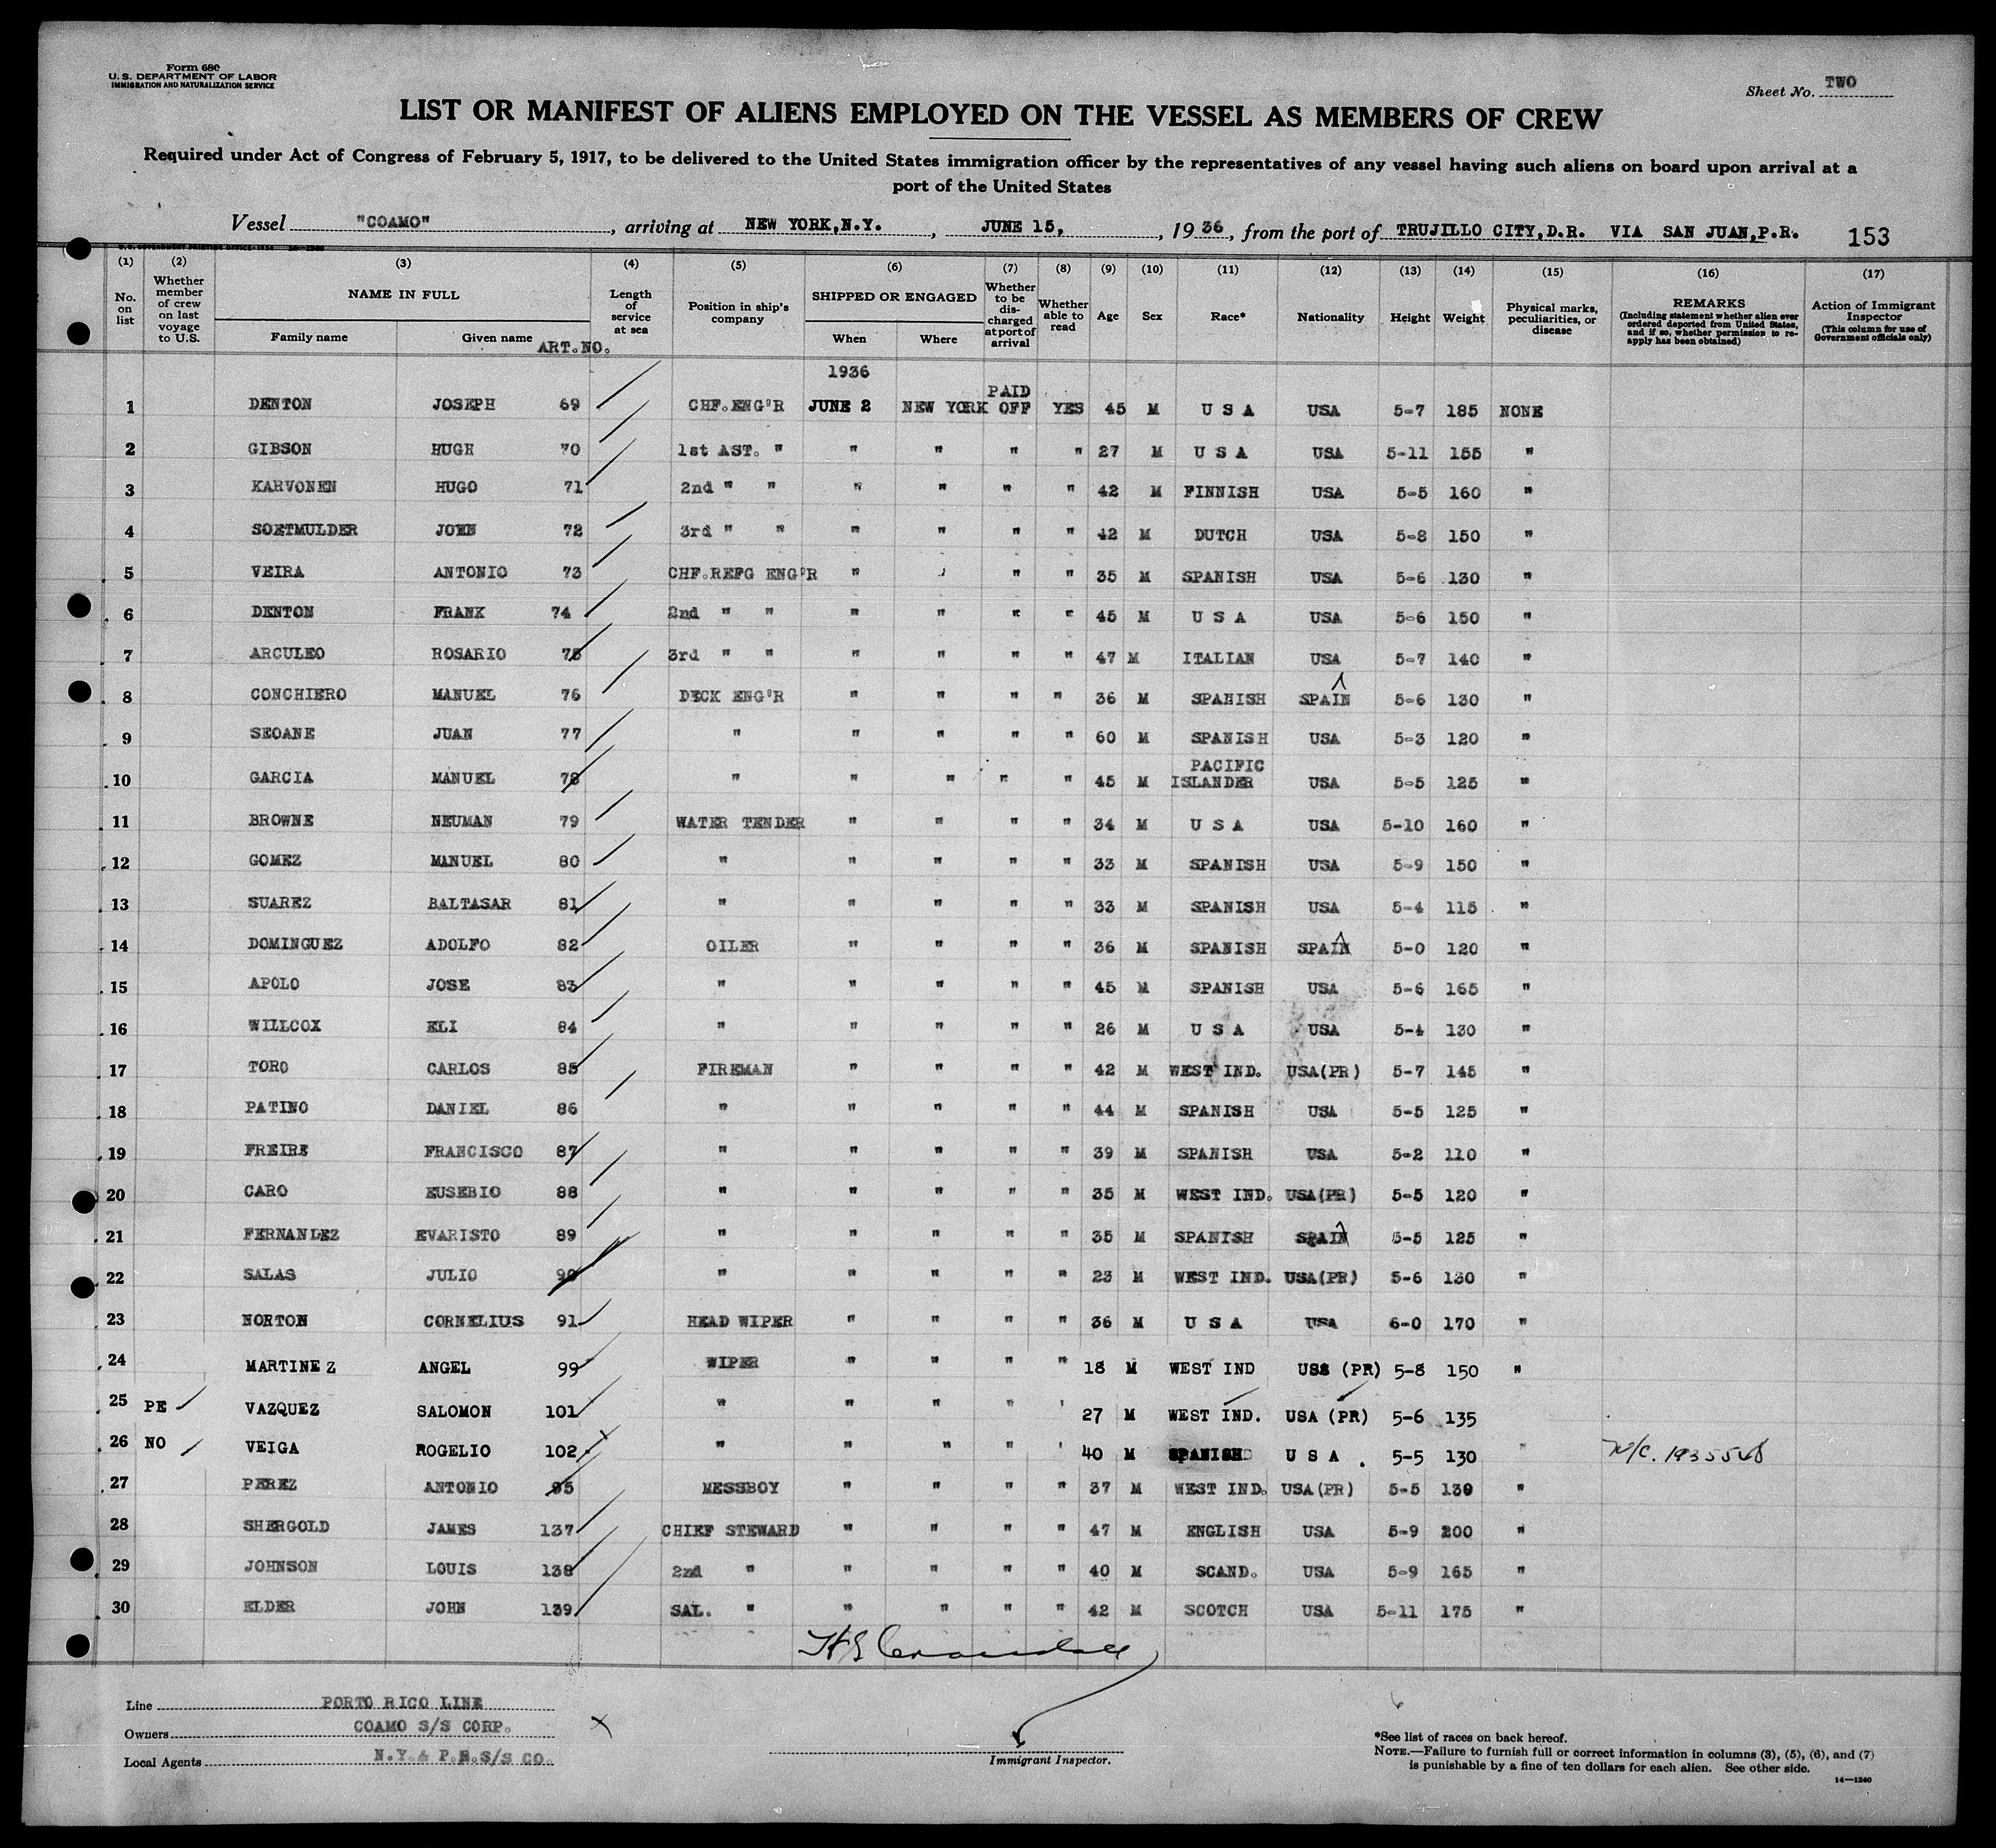 Form 680
U. S. DEPARTMENT OF LABOR
IMMIGRATION AND NATURALIZATION SERVICE
Sheet No. TWO
LIST OR MANIFEST OF ALIENS EMPLOYED ON THE VESSEL AS MEMBERS OF CREW
Required under Act of Congress of February 5, 1917, to be delivered to the United States immigration officer by the representatives of any vessel having such aliens on board upon arrival at a
port of the United States
Vessel "COAMO", arriving at NEW YORK,N.Y., JUNE 15, 1936, from the port of TRUJILLO CITY,D.R. VIA SAN JUAN,P.R. 153
(1) (2) (3) (4) (5) (6) (7) (8) (9) (10) (11) (12) (13) (14) (15) (16) (17)
No. on list
Whether member of crew on last voyage to U.S.
NAME IN FULL
Family name Given name ART.NO.
Length of service at sea
Position in ship's company
SHIPPED OR ENGAGED
When Where
Whether to be discharged at port of arrival
Whether able to read
Age Sex Race* Nationality Height Weight
Physical marks, peculiarities, or disease
REMARKS
(Including statement whether alien ever ordered deported from United States, and if so, whether permission to reapply has been obtained)
Action of Immigrant Inspector
(This column for use of Government officials only)
1936
PAID
1 DENTON JOSEPH 69 CHF.ENG'R JUNE 2 NEW YORK OFF YES 45 M U S A USA 5-7 185 NONE
2 GIBSON HUGH 70 1st AST. " " " " " 27 M U S A USA 5-11 155 "
3 KARVONEN HUGO 71 2nd " " " " " " 42 M FINNISH USA 5-5 160 "
4 SOETMULDER JOHN 72 3rd " " " " " " 42 M DUTCH USA 5-8 150 "
5 VEIRA ANTONIO 73 CHF.REFG ENG'R " " " " 35 M SPANISH USA 5-6 130 "
6 DENTON FRANK 74 2nd " " " " " " 45 M U S A USA 5-6 150 "
7 ARCULEO ROSARIO 75 3rd " " " " " " 47 M ITALIAN USA 5-7 140 "
8 CONCHIERO MANUEL 76 DECK ENG'R " " " " 36 M SPANISH SPAIN 5-6 130 "
9 SEOANE JUAN 77 " " " " " 60 M SPANISH USA 5-3 120 "
10 GARCIA MANUEL 78 " " " " " 45 M PACIFIC ISLANDER USA 5-5 125 "
11 BROWNE NEUMAN 79 WATER TENDER " " " " 34 M U S A USA 5-10 160 "
12 GOMEZ MANUEL 80 " " " " " 33 M SPANISH USA 5-9 150 "
13 SUAREZ BALTASAR 81 " " " " " 33 M SPANISH USA 5-4 115 "
14 DOMINGUEZ ADOLFO 82 OILER " " " " 36 M SPANISH SPAIN 5-0 120 "
15 APOLO JOSE 83 " " " " " 45 M SPANISH USA 5-6 165 "
16 WILLCOX ELI 84 " " " " " 26 M U S A USA 5-4 130 "
17 TORO CARLOS 85 FIREMAN " " " " 42 M WEST IND. USA(PR) 5-7 145 "
18 PATINO DANIEL 86 " " " " " 44 M SPANISH USA 5-5 125 "
19 FREIRE FRANCISCO 87 " " " " " 39 M SPANISH USA 5-2 110 "
20 CARO EUSEBIO 88 " " " " " 35 M WEST IND. USA(PR) 5-5 120 "
21 FERNANDEZ EVARISTO 89 " " " " " 35 M SPANISH SPAIN 5-5 125 "
22 SALAS JULIO 90 " " " " " 23 M WEST IND. USA(PR) 5-6 130 "
23 NORTON CORNELIUS 91 HEAD WIPER " " " " 36 M U S A USA 6-0 170 "
24 MARTINEZ ANGEL 99 WIPER " " " " 18 M WEST IND USS (PR) 5-8 150 "
25 PE VAZQUEZ SALOMON 101 " " " " ' 27 M WEST IND. USA (PR) 5-6 135
26 NO VEIGA ROGELIO 102 " " " " ' 40 M SPANISH U S A . 5-5 130 " N/C.
27 PEREZ ANTONIO 95 MESSBOY " " " " 37 M WEST IND. USA(PR) 5-5 130 "
28 SHERGOLD JAMES 137 CHIEF STEWARD " " " " 47 M ENGLISH USA 5-9 200 "
29 JOHNSON LOUIS 138 2nd " " " " " 40 M SCAND. USA 5-9 165 "
30 ELDER JOHN 139 SAL. " " " " " 42 M SCOTCH USA 5-11 175 "
Line PORTO RICO LINE
Owners COAMO S/S CORP.
Local Agents N.Y.& P.R.S/S CO.
Immigrant Inspector.
*See list of races on back hereof.
NOTE.—Failure to furnish full or correct information in columns (3), (5), (6), and (7)
is punishable by a fine of ten dollars for each alien. See other side.
14—1240